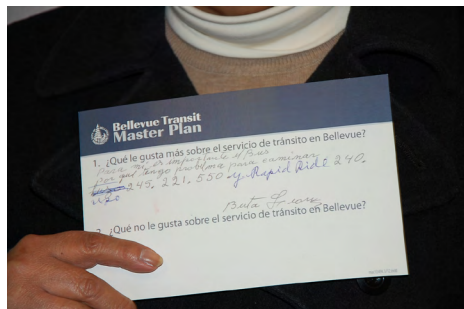 Bellevue Transit
Master Plan
1. ¿Qué le gusta más sobre el servicio de tránsito en Bellevue?
Para mi es importante el Bus
por qué tengo problema para caminar
uso 245, 221, 550 y Rapid Ride 240.
2. ¿Qué no le gusta sobre el servicio de tránsito en Bellevue?